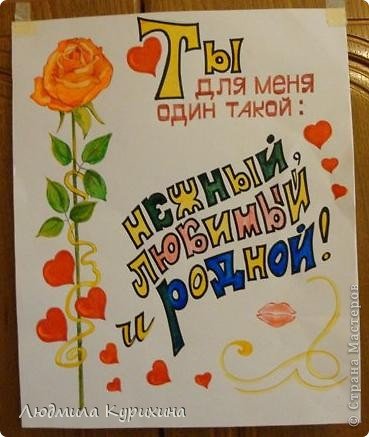 Ты
для меня
один такой:
нежный,
любимый
и родной!
Людмила Курихина
© Страна Мастеров